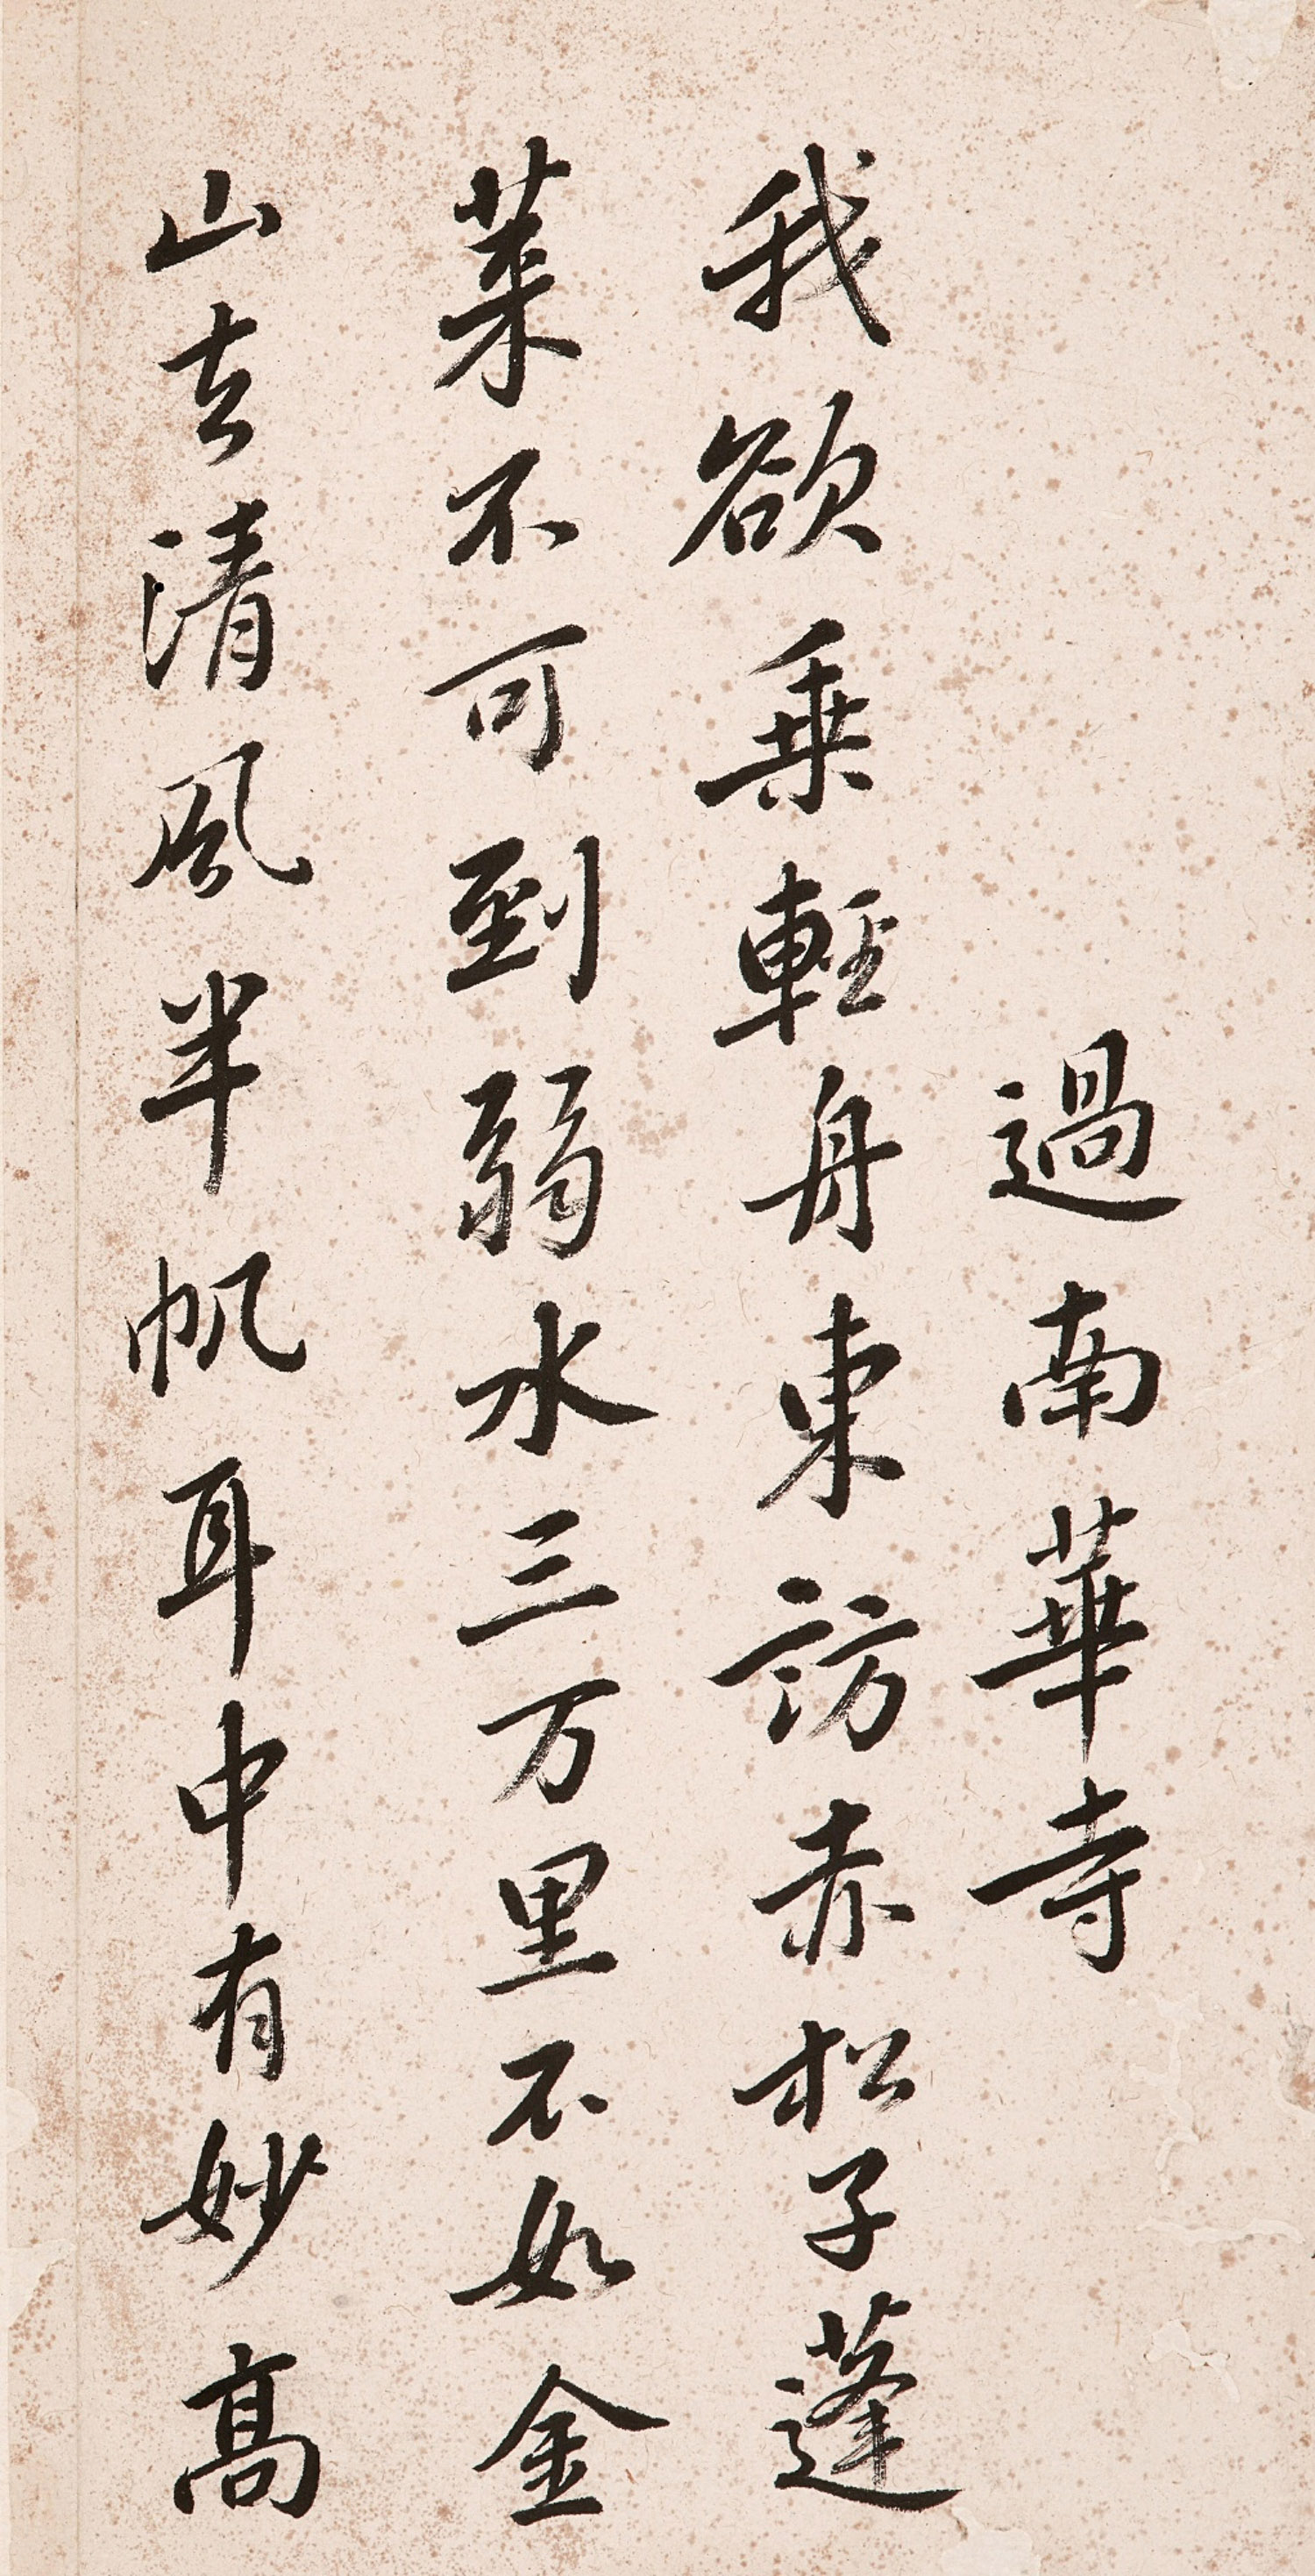 過南華寺
我欲乗輕舟東訪赤松子蓬
莱不可到弱水三万里不如金
山去清風半帆耳中有妙高